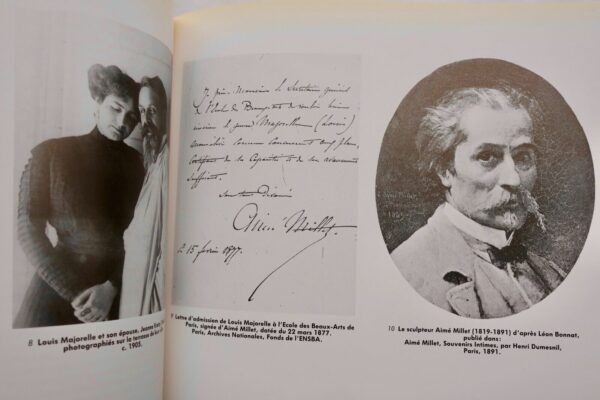 8 Louis Majorelle et son épouse, Jeanne
photographiés sur la terrasse de leur
c. 1905.
Je prie Monsieur le Secrétaire général
de l'Ecole des Beaux-Arts de vouloir bien
inscrire le jeune Majorelle (Louis)
comme concurrent
de sa Capacité et de son avancement
suffisant.
Son tout Dévoué
Aimé Millet.
15 février 1877.
9 Lettre d'admission de Louis Majorelle à l'Ecole des Beaux-Arts de
Paris, signée d'Aimé Millet, datée du 22 mars 1877.
Paris, Archives Nationales, Fonds de l'ENSBA.
10 Le sculpteur Aimé Millet (1819-1891) d'après Léon Bonnat,
publié dans:
Aimé Millet, Souvenirs Intimes, par Henri Dumesnil,
Paris, 1891.